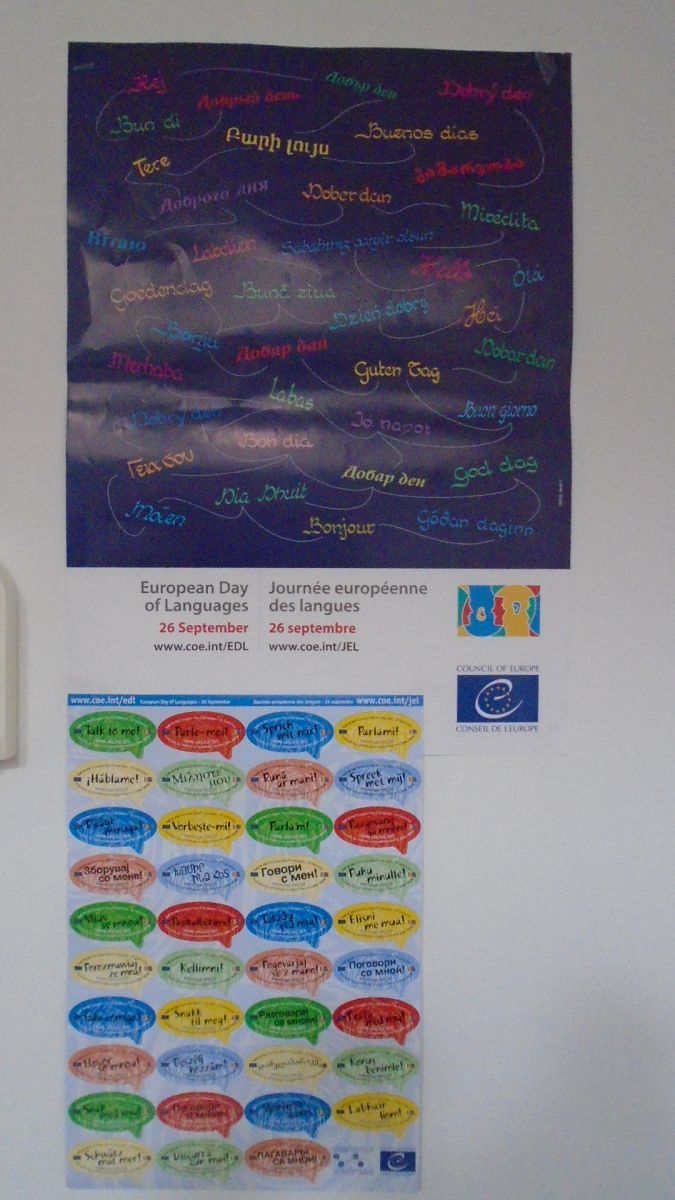 Hej
Добрый день
Добър ден
Dobrý den
Bun di
Բարի լույս
Buenos días
Tere
გამარჯობა
Доброго дня
Dober dan
Mirëdita
Kírajo
Labdien
Sabahınız xeyir olsun
Hello
Olá
Goedendag
Bună ziua
Dzień dobry
Hei
Bonju
Добар дан
Dobar dan
Merhaba
Guten Tag
Labas
Buon giorno
Dobrý deň
Jó napot
Bon dia
Γεια σου
Добар ден
God dag
Dia Dhuit
Moïen
Bonjour
Góðan daginn
European Day
of Languages
26 September
www.coe.int/EDL
Journée européenne
des langues
26 septembre
www.coe.int/JEL
COUNCIL OF EUROPE
CONSEIL DE L'EUROPE
www.coe.int/edl European Day of Languages - 26 September Journée européenne des langues - 26 septembre www.coe.int/jel
Talk to me!
Parle-moi!
Sprich
mit mir!
Parlami!
¡Háblame!
Μιλήστε
μου!
Runā
ar mani!
Spreek
met mij!
Vorbește-mi!
Parla'm!
Зборувај
со мене!
Говори
с мен!
Puhu
minulle!
Mluv
se mnou!
Flisni
me mua!
Porozmawiaj
ze mną!
Kellimni!
Поговори
со мной!
Snakk
til meg!
Разговарај
са мном!
Hovor
so mnou!
Beszélj
hozzám!
Konuş
benimle!
Labhair
liom!
Schwätz
mat mer!
ПАГАВАРЫ
СА МНОЙ!